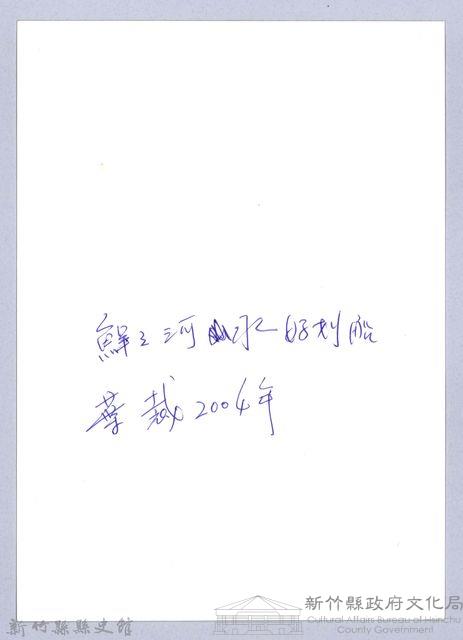 鮮之河水好划船
葉裁2004年
新竹縣政府文化局
Cultural Affairs Bureau of Hsinchu
County Government
新竹縣縣史館